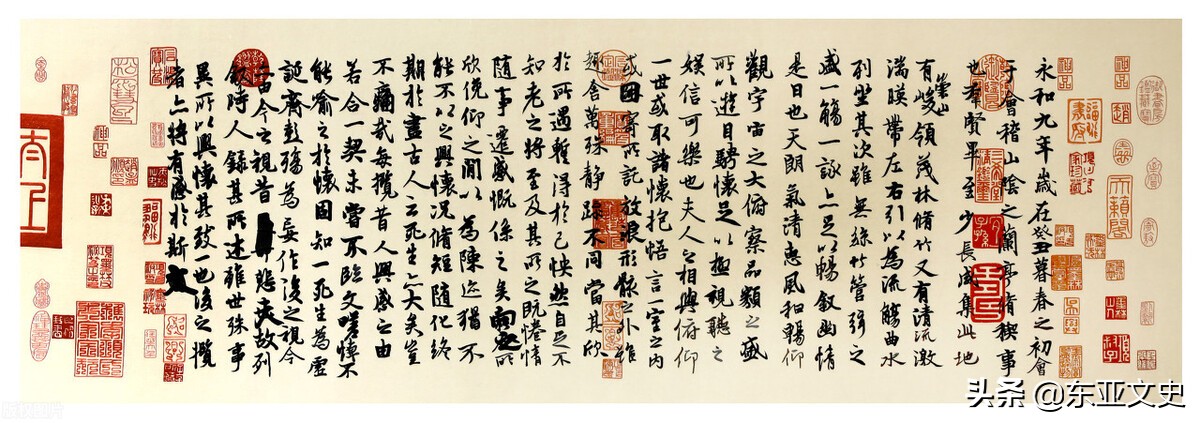 永和九年歲在癸丑暮春之初會
于會稽山陰之蘭亭脩稧事
也羣賢畢至少長咸集此地
有崇山峻領茂林脩竹又有清流激
湍暎帶左右引以為流觴曲水
列坐其次雖無絲竹管弦之
盛一觴一詠亦足以暢敘幽情
是日也天朗氣清惠風和暢仰
觀宇宙之大俯察品類之盛
所以遊目騁懷足以極視聽之
娛信可樂也夫人之相與俯仰
一世或取諸懷抱悟言一室之內
或因寄所託放浪形骸之外雖
趣舍萬殊靜躁不同當其欣
於所遇蹔得於己怏然自足不
知老之將至及其所之既惓情
隨事遷感慨係之矣向之所
欣俛仰之閒以為陳迹猶不
能不以之興懷況脩短隨化終
期於盡古人云死生亦大矣豈
不痛哉每攬昔人興感之由
若合一契未嘗不臨文嗟悼不
能喻之於懷固知一死生為虛
誕齊彭殤為妄作後之視今
亦由今之視昔悲夫故列
敘時人錄其所述雖世殊事
異所以興懷其致一也後之攬
者亦將有感於斯文
头条 @东亚文史